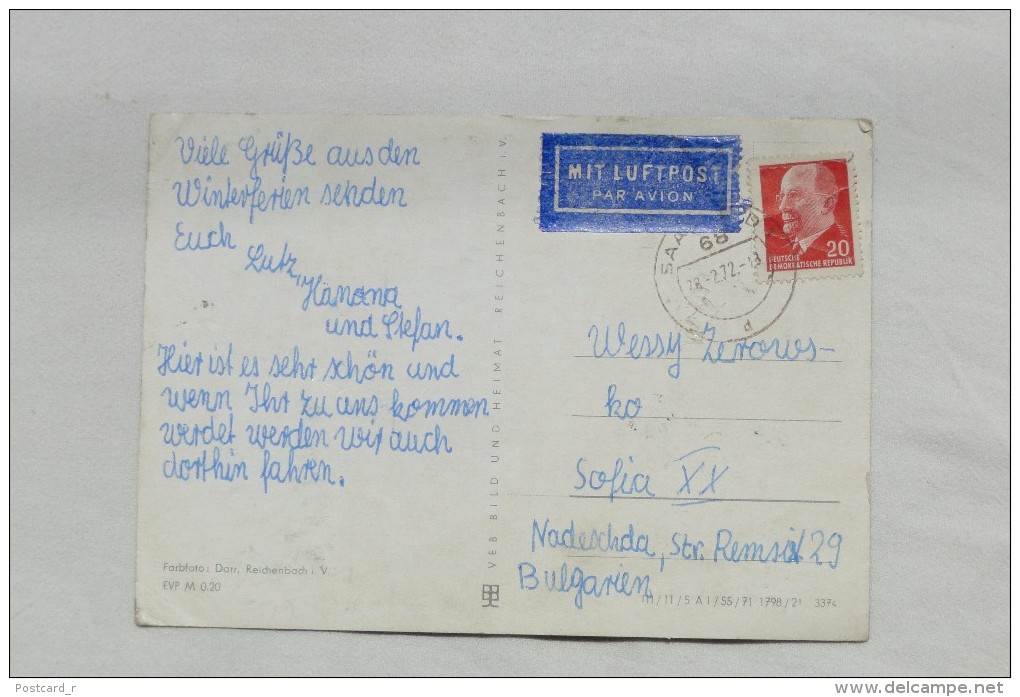 Viele Grüße aus den
Winterferien senden
Euch
Lutz,
Hanona
und Stefan.
Hier ist es sehr schön und
wenn Ihr zu uns kommen
werdet werden wir auch
dorthin fahren.
Farbfoto: Darr, Reichenbach i. V.
EVP M 0.20
VEB BILD UND HEIMAT REICHENBACH I. V.
MIT LUFTPOST
PAR AVION
20
DEUTSCHE
DEMOKRATISCHE REPUBLIK
68
-2.72.-
d
Wessy Zerows-
ko
Sofia XX
Nadeschda, Str. 29
Bulgarien
/11/5 A 1/55/71 1798/21 3374
Postcard_r
http://www.delcampe.net